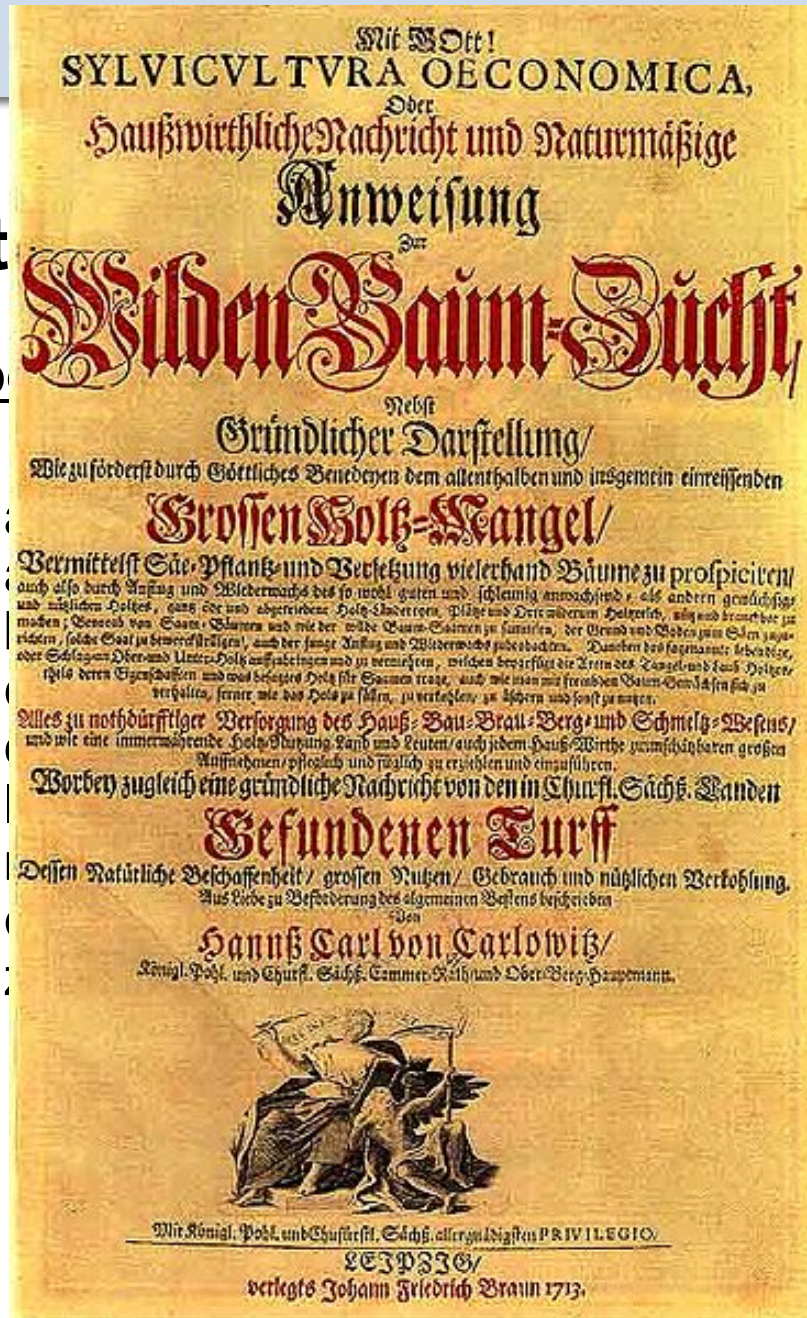 Mit GOtt!
SYLVICVLTVRA OECONOMICA,
Oder
Haußwirthliche Nachricht und Naturmäßige
Anweisung
Zur
Wilden Baum-Zucht,
Nebst
Gründlicher Darstellung/
Wie zu förderst durch Göttliches Benedeyen dem allenthalben und insgemein einreissenden
Grossen Holtz-Mangel/
Vermittelst Säe-Pflantz- und Versetzung vielerhand Bäume zu prospiciren/
auch also durch Anflug und Wiederwachs des so wohl guten und schleunig anwachsend, als andern gewüchsig,
und nützlichen Holtzes, gantz öde und abgetriebene Holtz-Ländereyen, Plätze und Orte wiederum Holtzreich, nütz und brauchbar zu
machen; Benebst von Saam-Bäumen und wie der wilde Baum-Saamen zu sammlen, der Grund und Boden zum Säen
solche Saat zu auch der junge Anflug und Wiederwachs zu beobachten. Daneben das sogenannte lebendige,
oder Schlag an Ober- und Unter-Holtz und zu vermehren, welchen die Arten des Tangel- und Laub Holtzes,
theils deren Eigenschafften und was besagtes Holtz für Saamen trage, auch wie man mit frembden Baum-Gewächsen sich zu
verhalten, ferner wie das Holtz zu fällen, zu verkohlen, zu äschern und sonst zu nutzen.
Alles zu nothdürfftiger Versorgung des Hauß-Bau-Brau-Berg- und Schmeltz-Wesens/
und wie eine immerwährende Holtz-Nutzung, Land und Leuten/ auch jedem Hauß-Wirthe zu unschätzbaren großen
Aufnehmen/ pfleglich und füglich zu erziehlen und einzuführen.
Worbey zugleich eine gründliche Nachricht von den in Churfl. Sächß. Landen
Gefundenen Turff
Dessen Natürliche Beschaffenheit/ grossen Nutzen/ Gebrauch und nützlichen Verkohlung.
Aus Liebe zu Beförderung des algemeinen Bestens beschrieben
Von
Hannß Carl von Carlowitz/
Königl. Pohl. und Churfl. Sächß. Cammer-Rath und Ober-Berg-Hauptmann.
Mit Königl. Pohl. und Chufürstl. Sächß. allergnädigsten PRIVILEGIO.
LEIPZIG/
verlegts Johann Friedrich Braun 1713.